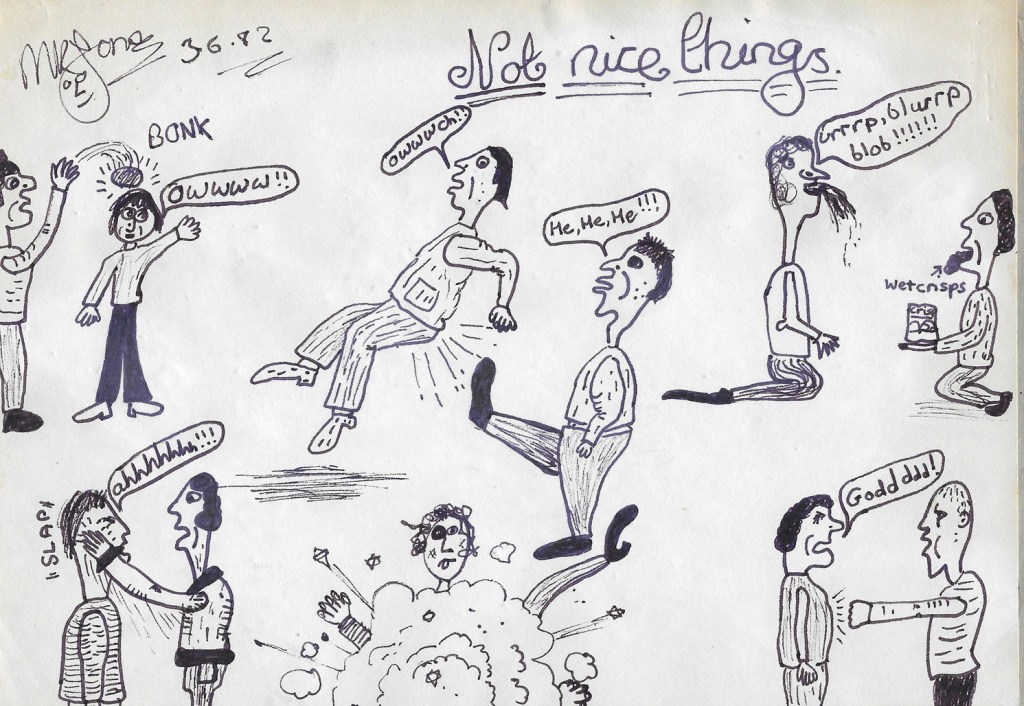 Mr Jones 3.6.82
Not nice things.
BONK
owwww!!
owwwch!!
He, He, He!!!
urrrp, blurrp
blob!!!!!!
wetcrisps
Cris
ahhhhhhh!!!
"SLAP"
Goddddd!